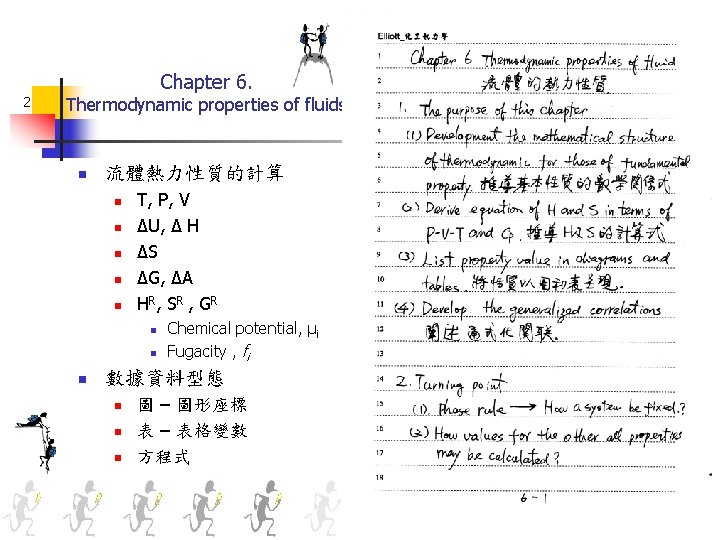 Chapter 6.
2
Thermodynamic properties of fluids
流體熱力性質的計算
T, P, V
ΔU, Δ H
ΔS
ΔG, ΔA
Hᴿ, Sᴿ , Gᴿ
Chemical potential, μi
Fugacity , fi
數據資料型態
圖 – 圖形座標
表 – 表格變數
方程式
Elliott_化工熱力學
1 Chapter 6 Thermodynamic properties of fluid
2 流體的熱力性質
3 1. The purpose of this chapter
4 (1) Development the mathematical structure
5 of thermodynamic for those of fundamental
6 property 推導基本性質的數學關係式
7 (2) Derive equation of H and S in terms of
8 P-V-T and Cp. 推導H及S的計算式
9 (3) List property value in diagrams and
10 tables. 將性質以圖和表呈現.
11 (4) Develop the generalized correlations
12 闡述通式化關聯.
13
14 2. Turning point
15 (1). Phase rule → How a system be fixed.?
16 (2) How values for the other all properties
17 may be calculated?
18
6-1